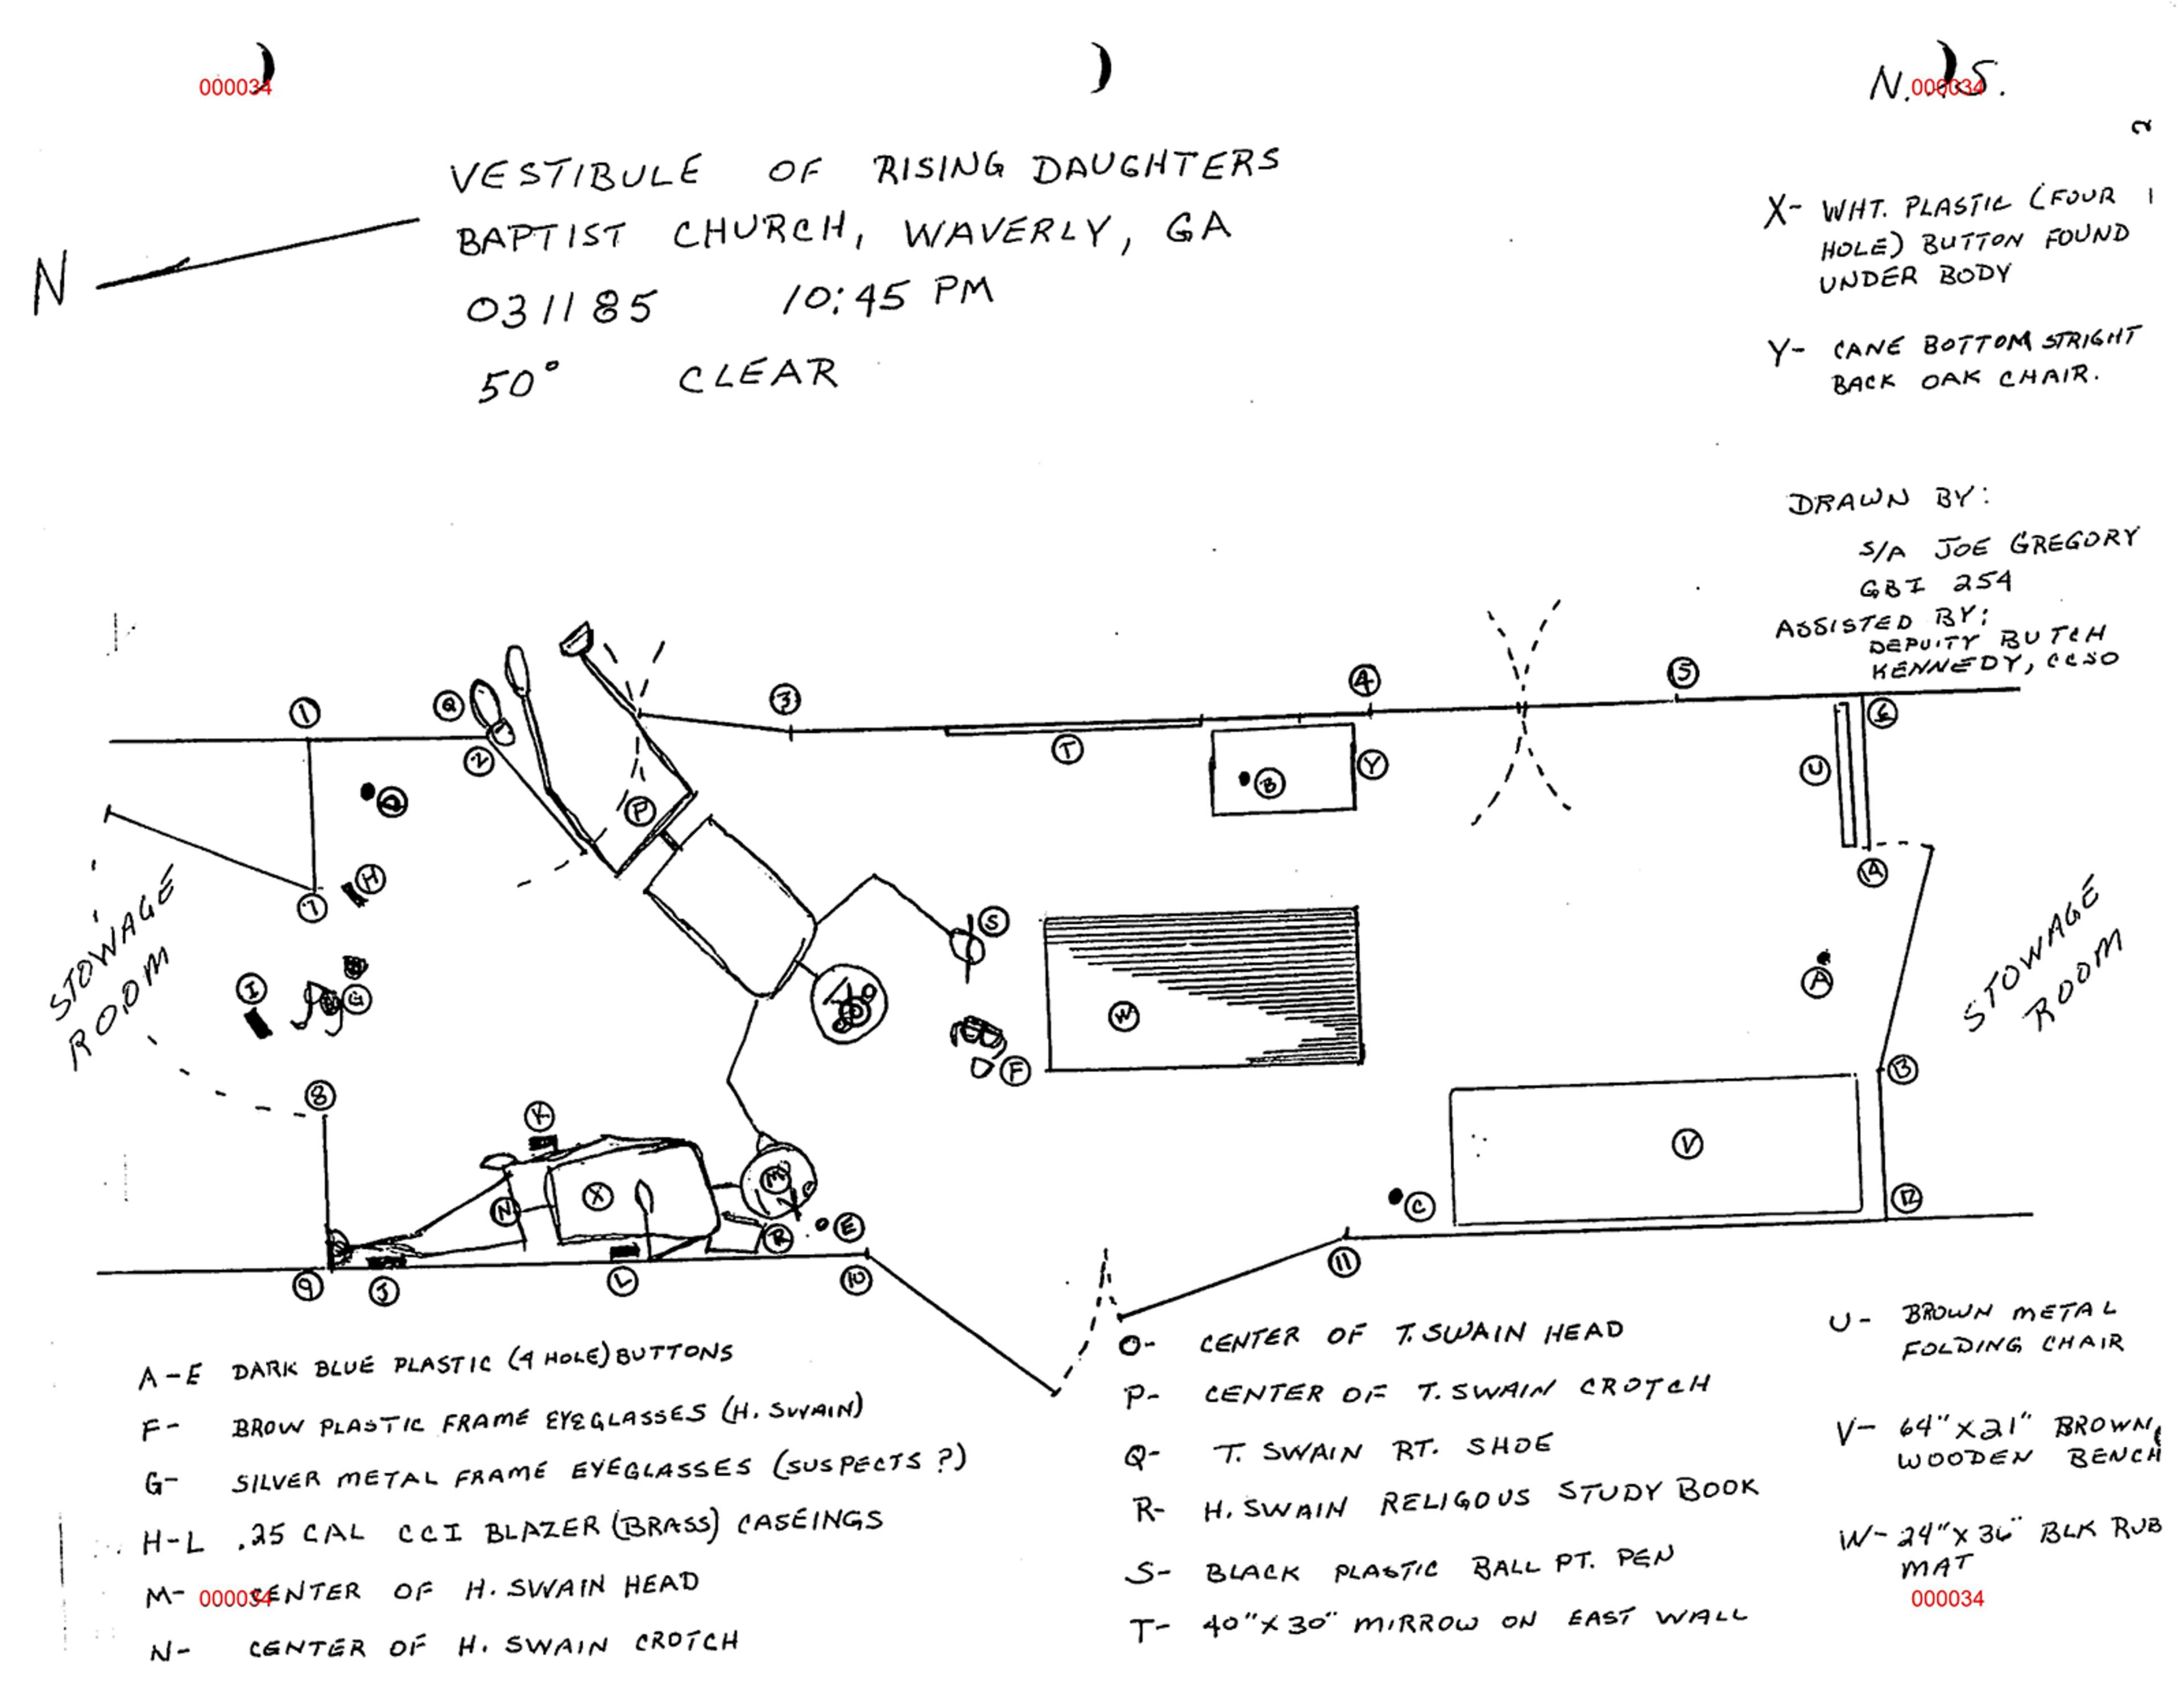 000034
000034
N. S.
VESTIBULE OF RISING DAUGHTERS
BAPTIST CHURCH, WAVERLY, GA
031185 10:45 PM
50° CLEAR
N
2
X- WHT. PLASTIC (FOUR
HOLE) BUTTON FOUND
UNDER BODY
Y- CANE BOTTOM STRIGHT
BACK OAK CHAIR.
DRAWN BY:
S/A JOE GREGORY
GBI 254
ASSISTED BY:
DEPUTY BUTCH
KENNEDY, CCSO
1
Q
2
3
4
5
6
T
B
Y
U
D
P
H
7
14
STOWAGE
ROOM
I
G
O
S
F
W
A
STOWAGE
ROOM
8
K
13
V
N
X
M
R
E
C
12
9
J
L
10
11
A-E DARK BLUE PLASTIC (4 HOLE) BUTTONS
F- BROW PLASTIC FRAME EYEGLASSES (H. SWAIN)
G- SILVER METAL FRAME EYEGLASSES (SUSPECTS ?)
H-L .25 CAL CCI BLAZER (BRASS) CASEINGS
M- CENTER OF H. SWAIN HEAD
000034
N- CENTER OF H. SWAIN CROTCH
O- CENTER OF T. SWAIN HEAD
P- CENTER OF T. SWAIN CROTCH
Q- T. SWAIN RT. SHOE
R- H. SWAIN RELIGOUS STUDY BOOK
S- BLACK PLASTIC BALL PT. PEN
T- 40" X 30" MIRROW ON EAST WALL
U- BROWN METAL
FOLDING CHAIR
V- 64" X 21" BROWN
WOODEN BENCH
W- 24" X 36" BLK RUB
MAT
000034